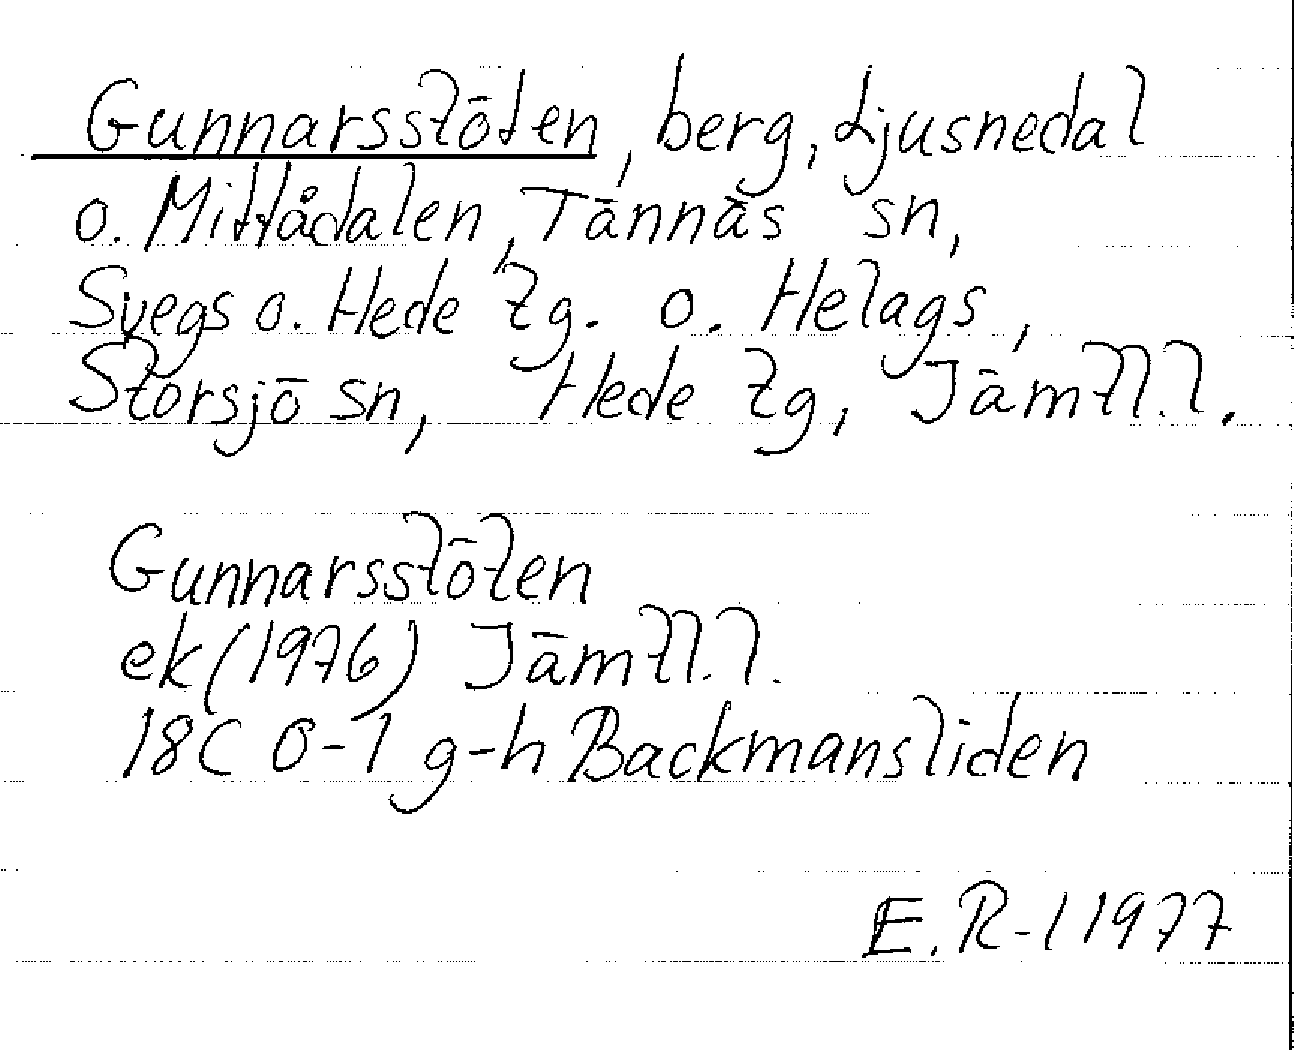 Gunnarsstöten, berg, Ljusnedal
o. Mittådalen, Tännäs sn,
Svegs o. Hede tg. o. Helags,
Storsjö sn, Hede tg, Jämtl.l.
Gunnarsstöten
ek (1976) Jämtl.l.
18C 0-1 g-h Backmansliden
E. R-l 1977